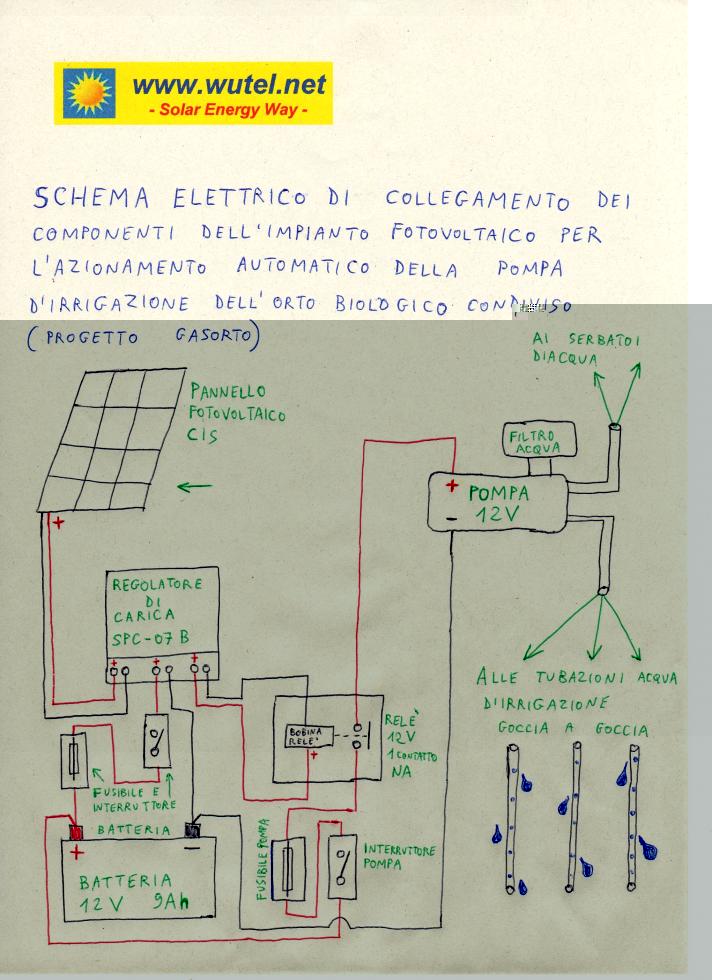 www.wutel.net
- Solar Energy Way -
SCHEMA ELETTRICO DI COLLEGAMENTO DEI
COMPONENTI DELL'IMPIANTO FOTOVOLTAICO PER
L'AZIONAMENTO AUTOMATICO DELLA POMPA
D'IRRIGAZIONE DELL'ORTO BIOLOGICO CONDIVISO
(PROGETTO GASORTO)
AI SERBATOI
D'ACQUA
PANNELLO
FOTOVOLTAICO
CIS
FILTRO
ACQUA
+ POMPA
- 12V
+
REGOLATORE
DI
CARICA
SPC-07 B
+ + +
ALLE TUBAZIONI ACQUA
D'IRRIGAZIONE
GOCCIA A GOCCIA
BOBINA
RELE'
+
RELE'
12V
1 CONTATTO
NA
FUSIBILE E
INTERRUTTORE
BATTERIA
+ -
BATTERIA
12V 9Ah
FUSIBILE POMPA
INTERRUTTORE
POMPA